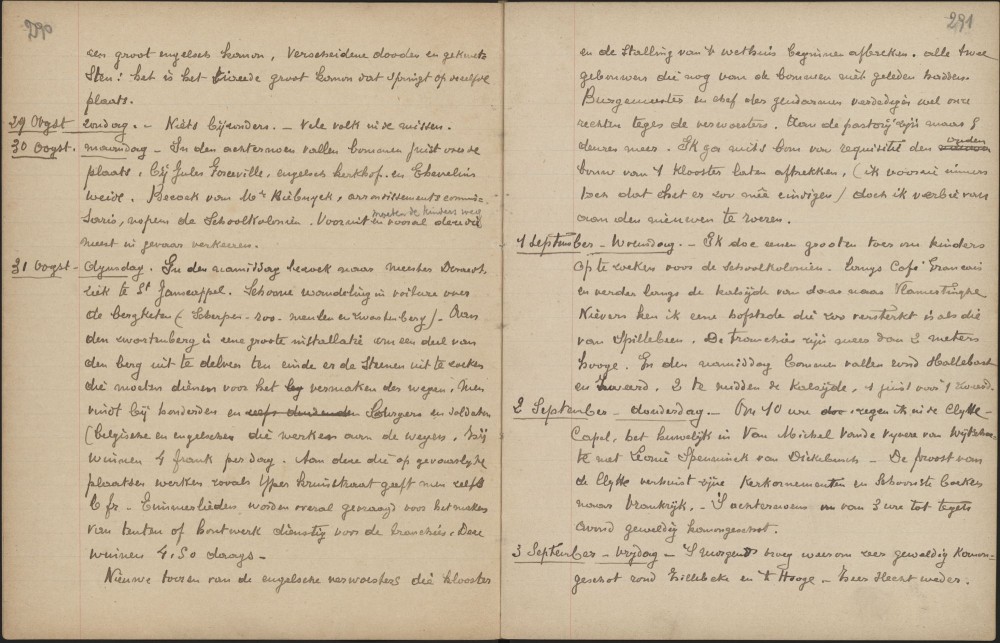 290
een groot engelsch kanon, verscheidene dooden en gekwets-
sten: het is het tweede groot kanon dat springt op dezelfde
plaats.
29 Oogst zondag. - Niets bijzonders. - Vele volk in de missen.
30 Oogst. maandag - In den achternoen vallen bommen juist over de
plaats, bij Jules Goseville, engelsch kerkhof en Chevelius
weide. Bezoek van Mr Biebuyck, arrondissementscommis-
saris, nopens de Schoolkolonien. Vooruit moeten de kinders weg
en vooral deze die
meest in gevaar verkeeren.
31 Oogst - dijnsdag. In den namiddag bezoek naar meester
te St Janscappel. Schoone wandeling in voiture over
de bergketen (Scherpen- roo- meulen en zwartenberg). Aan
den zwartenberg is eene groote installatie om een deel van
den berg uit te delven ten einde er de steenen uit te zoeken
die moeten dienen voor het vermaken der wegen; men
vindt bij honderden en burgers en soldaten
(belgische en engelschen die werken aan de wegen. Zij
winnen 4 frank per dag. Aan deze die op gevaarlijke
plaatsen werken zooals Yper Kruistraat geeft men zelfs
6 fr. - Timmerlieden worden overal gevraagd voor het maken
van tenten of houtwerk dienstig voor de tranchés. Deze
winnen 4,50 daags -
Nieuwe toeren van de engelsche verwoesters die klooster
291
en de stalling van 't wethuis beginnen afbreken. alle twee
gebouwen die nog van de bommen niet geleden hadden.
Burgemeester en chef der gendarmen verdedigen wel onze
rechten tegen de verwoesters. Aan de pastorij zijn maar 8
deuren meer. Ik ga mits bon van requisitie den ouden
bouw van 't klooster laten aftrekken, (ik voorzie immers
toch dat het er zoo mêe eindigen) doch ik verbied van
aan den nieuwen te roeren.
1 September - Woensdag. - Ik doe eenen grooten toer om kinders
op te zoeken voor de schoolkolonien. langs Café Francais
en verder langs de kalsijde van daar naar Vlamertinghe
Nievers ken ik eene hofstede die zoo versterkt is als die
van Spillebeen. De tranchées zijn meer dan 2 meters
hooge. In den namiddag bommen vallen rond Hallebast
en 2 te midden de kalsijde, 1 juist voor 't
2 September - donderdag. - Om 10 ure zegen ik in de Clytte-
Capel, het huwelijk in van Michel Vande Vyvere van Wijtschae-
te met Leonie Spenninck van Dickebusch - De proost van
de Clytte verhuist zijne kerkornementen en schoonste boeken
naar Vrankrijk. - 'S achternoens van 3 ure tot tegen
avond geweldig kanongeschot.
3 September - Vrijdag - 'S morgends vroeg weerom zeer geweldig kanon-
geschot rond Zillebeke en 't Hooge - zeer slecht weder.